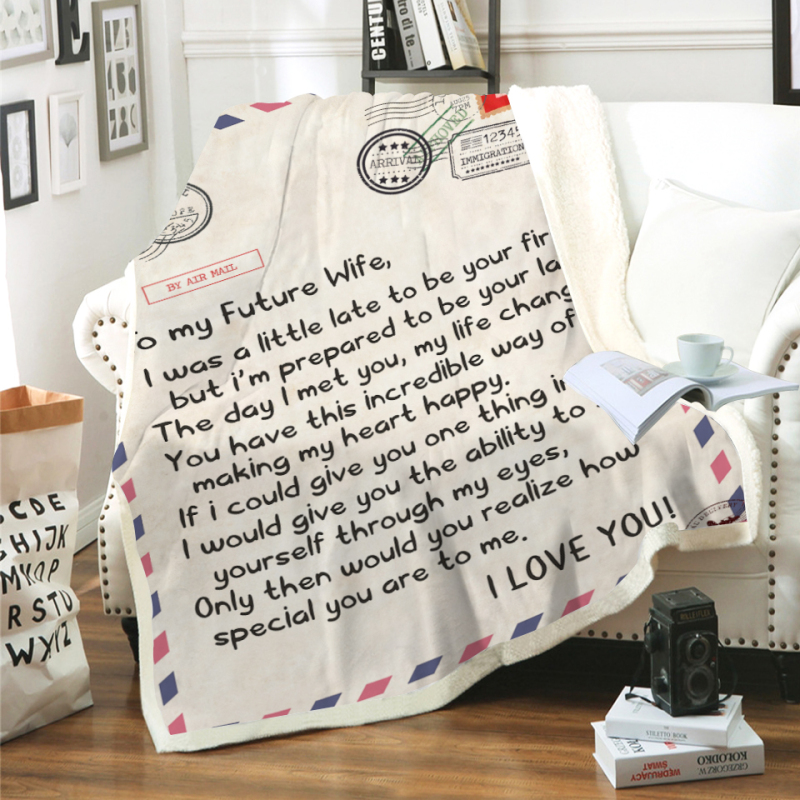 CENTU
tro di te
E
ARRIVAL
12345
IMMIGRATION
BY AIR MAIL
o my Future Wife,
I was a little late to be your fir
but i'm prepared to be your la
The day I met you, my life chang
You have this incredible way of
making my heart happy.
If i could give you one thing in
I would give you the ability to
yourself through my eyes,
Only then would you realize how
special you are to me.
I LOVE YOU!
CDE
HIJK
MNOP
RSTU
WXYZ
ROLLEIFLEX
GRZEGORZ W. KOŁODKO
WĘDRUJĄCY ŚWIAT